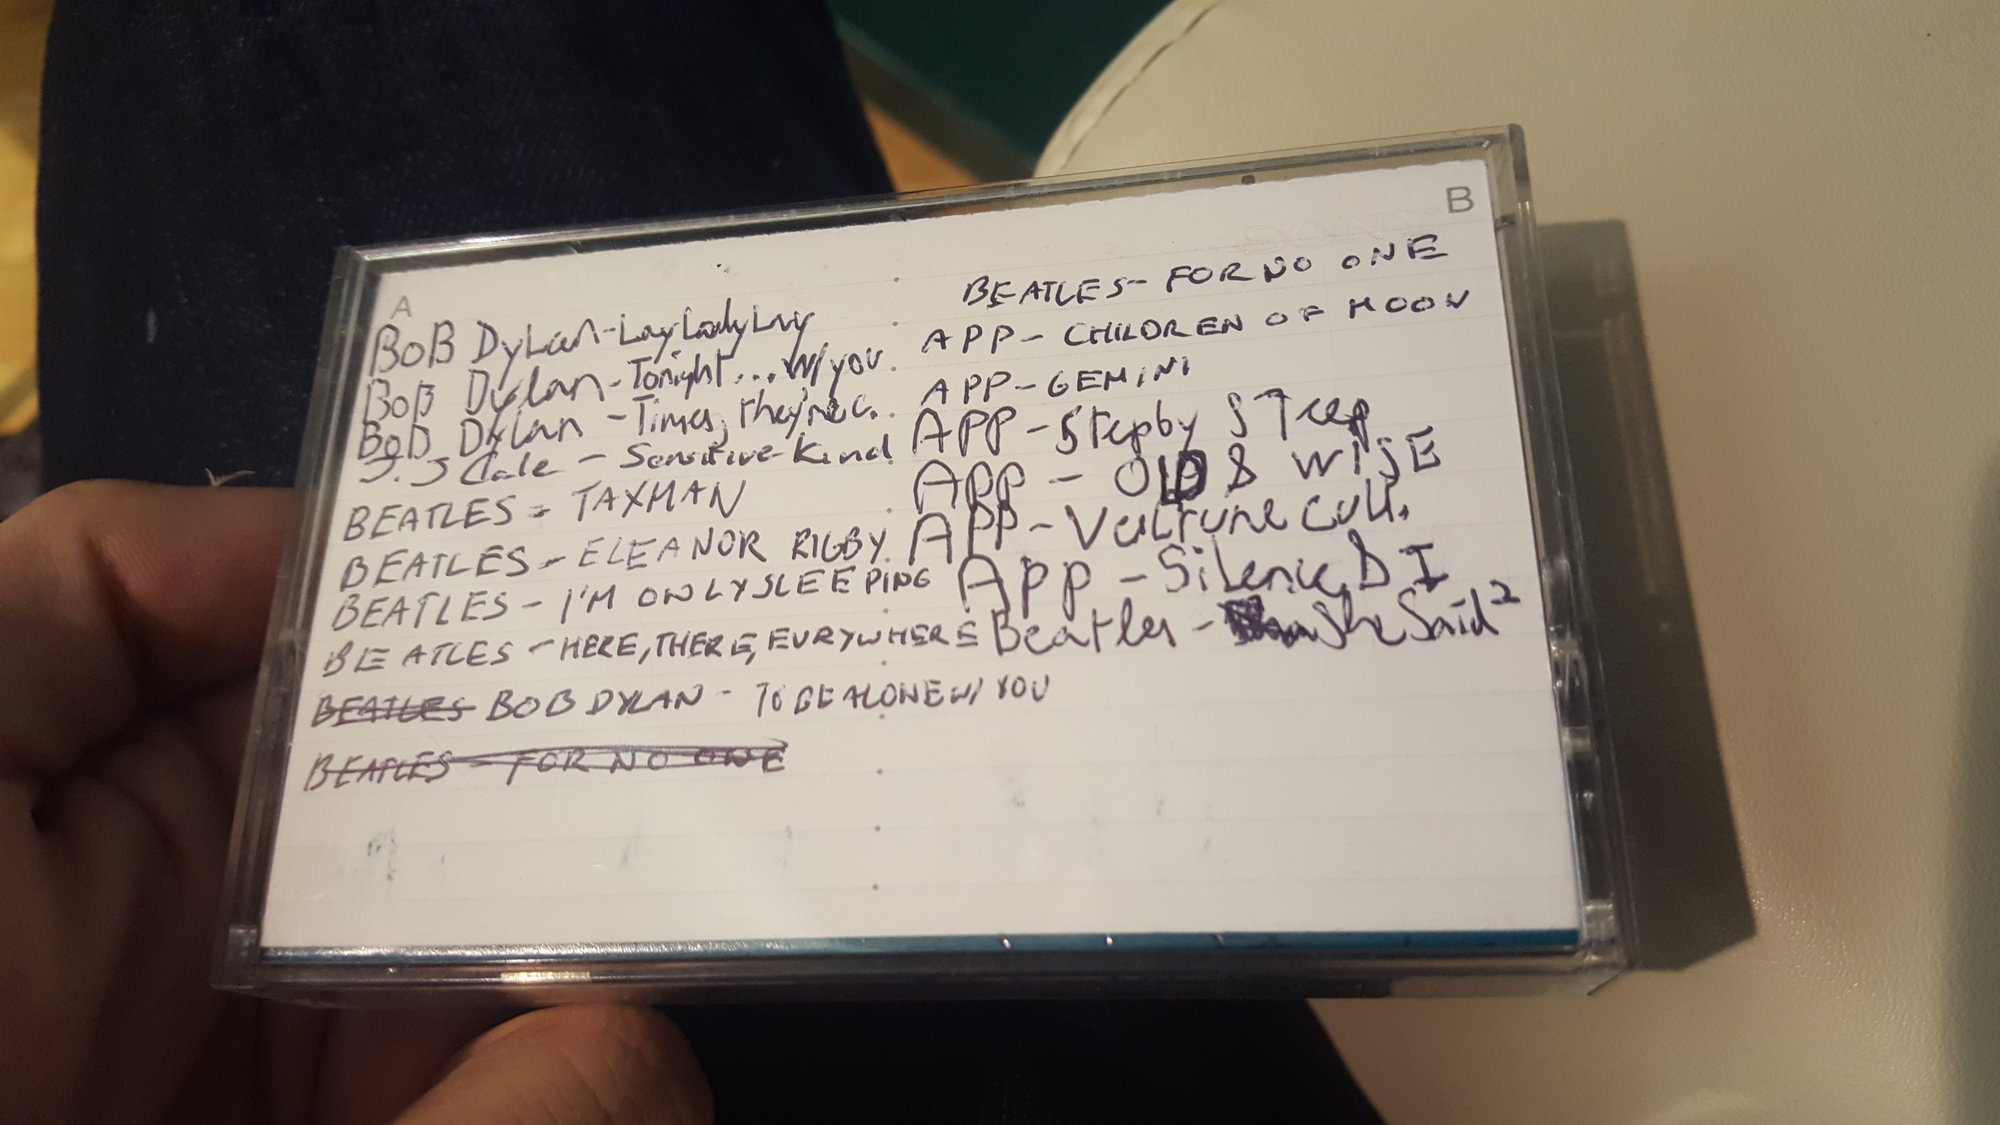 A
BOB DyLan-Lay Lady Lay
BOB Dylan-Tonight...w/you
BOB Dylan - Times, they're c.
J.J Cale - Sensitive Kind
BEATLES - TAXMAN
BEATLES - ELEANOR RIGBY
BEATLES - I'M ONLY SLEEPING
BEATLES - HERE, THERE, EVRYWHERE
BEATLES BOB DYLAN - TO BE ALONE W/ YOU
BEATLES - FOR NO ONE
B
SONY
BEATLES - FOR NO ONE
APP - CHILDREN OF MOON
APP - GEMINI
APP - Step by STeep
APP - OLD & WISE
APP - Vultrune Cult.
APP - Silence & I
Beatles - She Said²